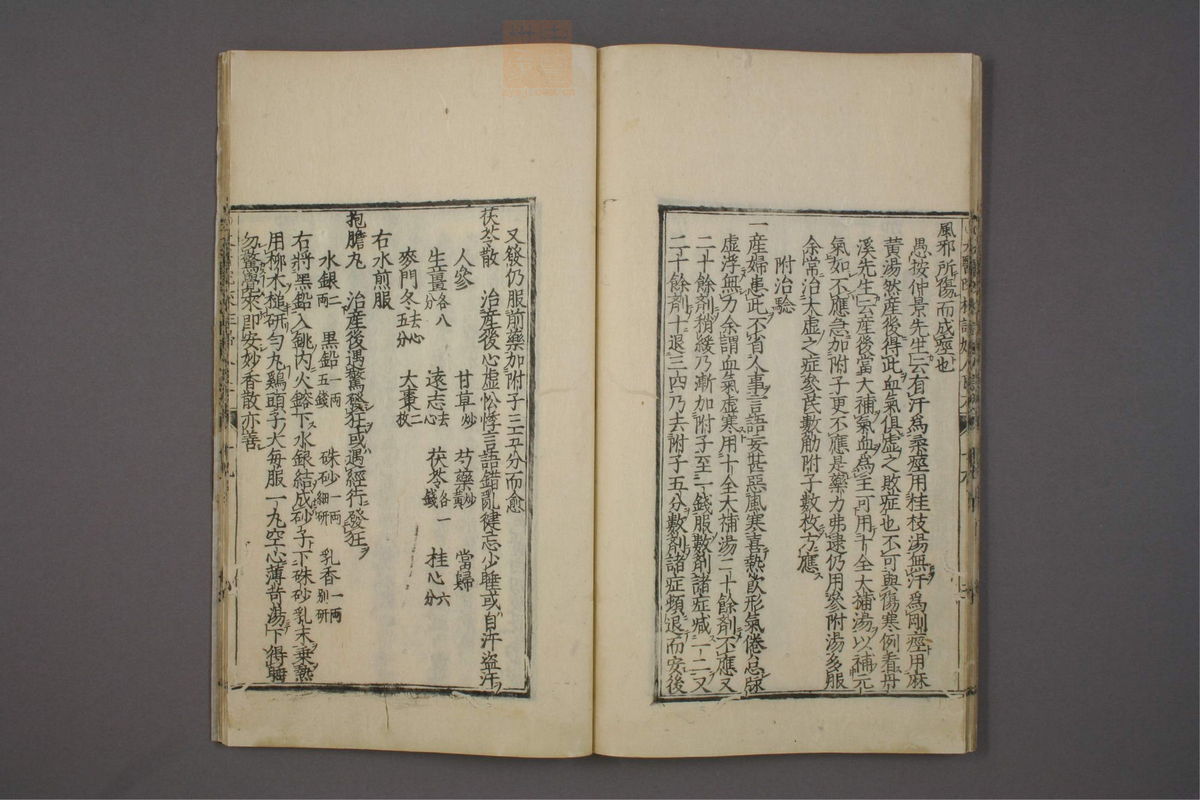 風邪所傷而成痙也
愚按仲景先生云有汗爲柔痙用桂枝湯無汗爲剛痙用麻
黃湯然産後得此血氣俱虛之敗症也不可與傷寒例看丹
溪先生云産後當大補氣血爲主可用十全大補湯以補元
氣如不應急加附子更不應是藥力弗逮仍用參附湯多服
余常治大虛之症參芪數觔附子數枚方應
附治驗
一産婦患此不省人事言語妄甚惡風寒喜熱飲形氣倦怠脉
虛浮無力余謂血氣虛寒用十全大補湯二十餘剤不應又
二十餘剤稍緩乃漸加附子至一錢服數剤諸症减一二又
二十餘剤十退三四乃去附子五分數剤諸症頻退而安後
又發仍服前藥加附子三五分而愈
茯苓散 治産後心虛忪悸言語錯亂健忘少睡或自汗盜汗
人參 甘草炒 芍藥炒黃 當歸
生薑各八分 遠志去心 茯苓各一錢 桂心六分
麥門冬去心五分 大棗二枚
右水煎服
抱膽丸 治産後遇驚發狂或遇經行發狂
水銀二両 黒鉛一両五錢 硃砂一両細研 乳香一両別研
右將黒鉛入銚内火鎔下水銀結成砂子下硃砂乳末乗熱
用柳木槌研勻丸鷄頭子大每服一丸空心薄荷湯下得睡
勿驚覺來即安妙香散亦善